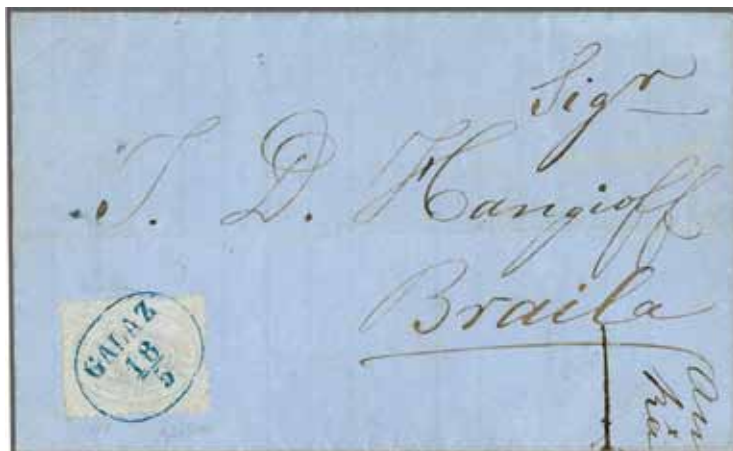 Sigr
J. D. Hangioff
Braila
GALAZ
18/5